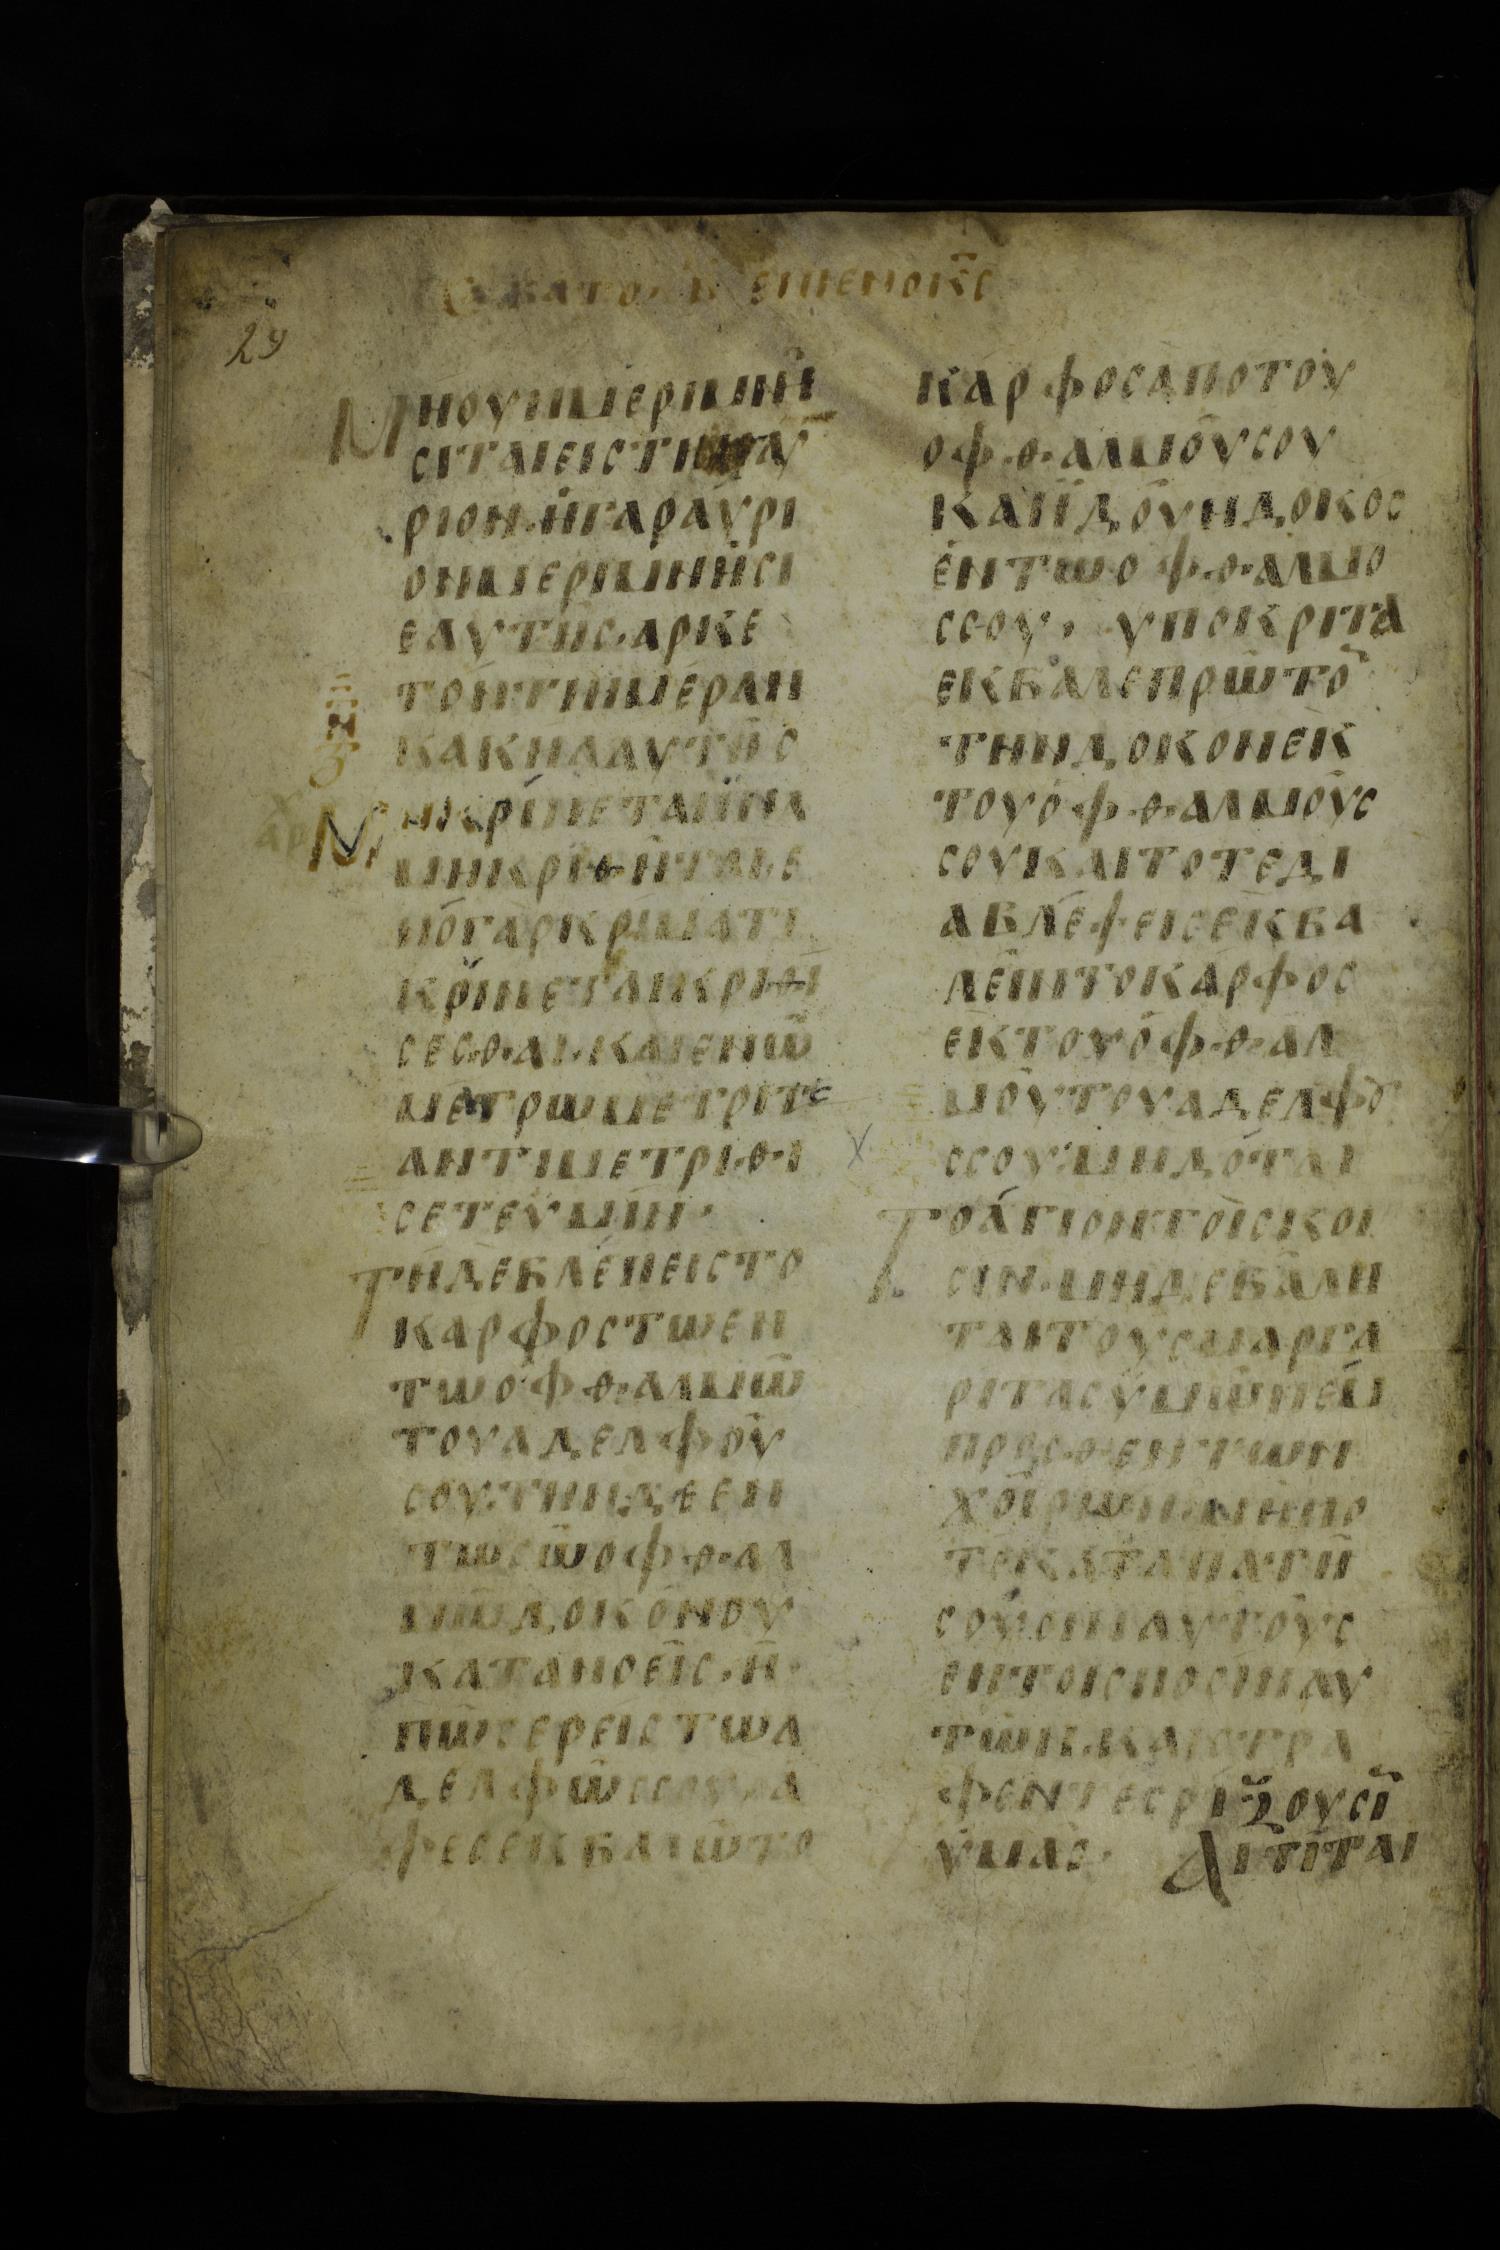 29
ΜΗΟΥΜΜΕΡΙΜΝΗ
ΣΙΤΑΙΕΙΣΤΗΝΑΥ
ΡΙΟΝ·ΗΓΑΡΑΥΡΙ
ΟΝΜΕΡΙΜΝΗΣΙ
ΕΑΥΤΗΣ·ΑΡΚΕ
ΤΟΝΤΗΗΜΕΡΑΗ
ΚΑΚΗΑΑΥΤΗΣ
ΜΗΚΡΙΝΕΤΑΙΪΝΑ
ΜΗΚΡΙΘΗΤΑΙ·Ε
ΝΟΓΑΡΚΡΙΜΑΤΙ
ΚΡΙΝΕΤΑΙΚΡΙΘΙ
ΣΕΣΘΑΙ·ΚΑΙΕΝΩ
ΜΕΤΡΩΜΕΤΡΙΤΕ
ΑΝΤΙΜΕΤΡΙΘΙ
ΣΕΤΕΥΜΙΝ·
ΤΗΔΕΒΛΕΠΕΙΣΤΟ
ΚΑΡΦΟΣΤΩΕΝ
ΤΩΟΦΘΑΛΜΩ
ΤΟΥΑΔΕΛΦΟΥ
ΣΟΥ·ΤΗΝΔΕΕΝ
ΤΩΣΩΟΦΘΑΛ
ΜΩΔΟΚΟΝΟΥ
ΚΑΤΑΝΟΕΙΣ·Η·
ΠΩΣΕΡΕΙΣΤΩΑ
ΔΕΛΦΩΣΣΟΥ·Α
ΦΕΣΕΚΒΑΛΩΤΟ
ΚΑΡΦΟΣΑΠΟΤΟΥ
ΟΦΘΑΛΜΟΥΣΟΥ
ΚΑΙΪΔΟΥΗΔΟΚΟΣ
ΕΝΤΩΟΦΘΑΛΜΟ
ΣΣΟΥ, ΥΠΟΚΡΙΤΑ
ΕΚΒΑΛΕΠΡΩΤΟ
ΤΗΝΔΟΚΟΝΕΚ
ΤΟΥΟΦΘΑΛΜΟΥΣ
ΣΟΥΚΑΙΤΟΤΕΔΙ
ΑΒΛΕΨΕΙΣΕΚΒΑ
ΛΕΙΝΤΟΚΑΡΦΟΣ
ΕΚΤΟΥΟΦΘΑΛ
ΜΟΥΤΟΥΑΔΕΛΦΟΥ
ΣΣΟΥ·ΜΗΔΟΤΑΙ
ΤΟΑΓΙΟΝΤΟΙΣΚΟΙ
ΣΙΝ·ΜΗΔΕΒΑΛΗ
ΤΑΙΤΟΥΣΜΑΡΓΑ
ΡΙΤΑΣΥΜΩΝΕΜ
ΠΡΟΣΘΕΝΤΩΝ
ΧΟΙΡΩΝ·ΜΗΠΟ
ΤΕΚΑΤΑΠΑΤΗ
ΣΟΥΣΙΝΑΥΤΟΥΣ
ΕΝΤΟΙΣΠΟΣΙΝΑΥ
ΤΩΝ·ΚΑΙΣΤΡΑ
ΦΕΝΤΕΣΡΙΞΟΥΣΙ
ΥΜΑΣ· ΑΙΤΙΤΑΙ